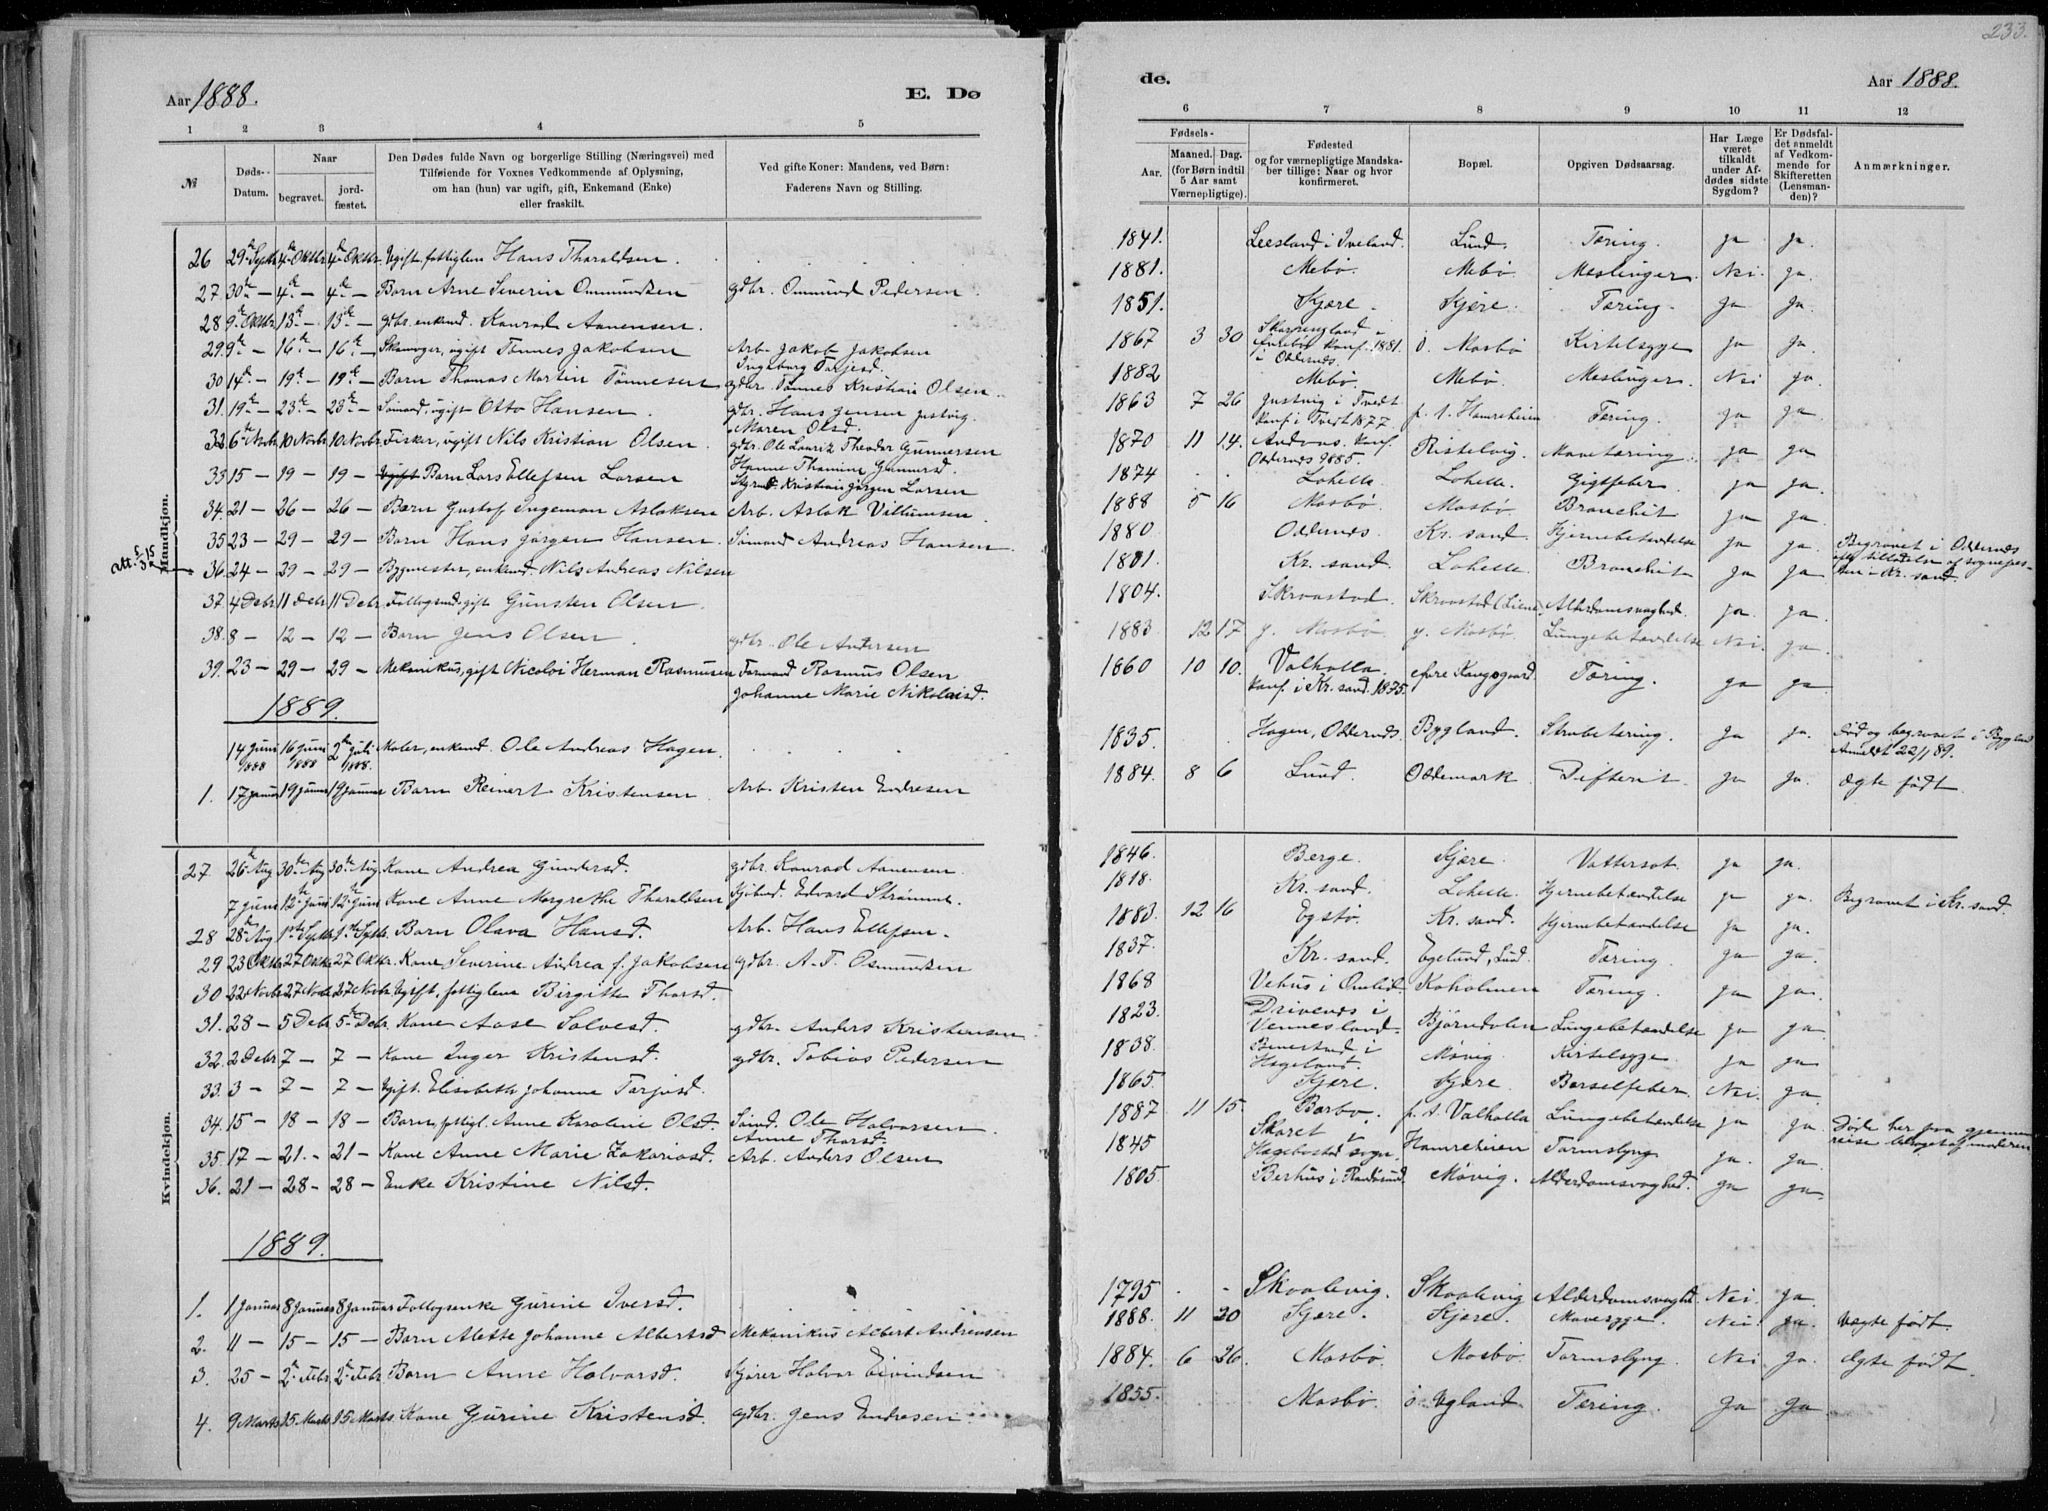 233.
Aar 1888.
E. Dø
de.
Aar 1888.
1 2 3 4 5
6 7 8 9 10 11 12
№
Døds-Datum.
Naar
begravet.
jordfæstet.
Den Dødes fulde Navn og borgerlige Stilling (Næringsvei) med
Tilføiende for Voxnes Vedkommende af Oplysning,
om han (hun) var ugift, gift, Enkemand (Enke)
eller fraskilt.
Ved gifte Koner: Mandens, ved Børn:
Faderens Navn og Stilling.
Fødsels-
Aar.
Maaned.
Dag.
(for Børn indtil
5 Aar samt
Værnepligtige).
Fødested
og for værnepligtige Mandska-
ber tillige: Naar og hvor
konfirmeret.
Bopæl.
Opgiven Dødsaarsag.
Har Læge
været
tilkaldt
under Af-
dødes sidste
Sygdom?
Er Dødsfal-
det anmeldt
af Vedkom-
mende for
Skifteretten
(Lensman-
den)?
Anmærkninger.
Mandkjøn.
26 29de Septbr 4de Oktbr. 4de Oktbr. Ugift, fattiglem Hans Tharaldsen . 1841. Leesland i Iveland. Lund. Tæring. ja ja.
27 30te — 4de — 4de — Barn Arne Severin Ommundsen gdbr. Ommund Pedersen . 1881. Mebø. Mebø. Meslinger. Nei. ja.
28 9de Oktbr 13de — 13de — gdbr. enkemd. Konrad Aanensen . 1851. Kjære. Kjære. Tæring. ja ja.
29. 9de — 16de — 16de — ugift Tønnes Jakobsen Arb. Jakob Jakobsen 1867 3 30 konf. 1881.
Ingeborg Tarjesd. i Oddernes. ø. Mosbø Kirtelsyge ja ja.
30 14de — 19de — 19de — Barn Thomas Martin Tønnesen gdbr. Tønnes Kristian Olsen . 1882 Mebø. Mebø. Meslinger. Nei ja.
31. 19de — 23de — 23de — Sømand, ugift Otto Hansen . gdbr. Hans Jensen Justvig 1863 7 26 Justvig i Tvedt
Maren Olsd. konf. i Tvedt 1877. p. t. Hamreheim Tæring. ja ja.
32. 6te Novbr. 10 Novbr. 10 Novbr. Fisker, ugift Nils Kristian Olsen . gdbr. Ole Lauritz Theodor Gunnersen 1870 11 14. Andvas. konf.
Hanne Thomine Gunnersd. Oddernes 1885. Ristelvig. Mavetæring. ja ja.
33 15 — 19 — 19 — Ugift Barn Lars Ellefsen Larsen Styrmd. Kristian Jørgen Larsen 1874 . . Lohelle. Lohelle. Gigtfeber. ja ja.
34. 21 — 26 — 26 — Barn Gustof Ingeman Aslaksen Arb. Aslak Villumsen . 1888 5 16 Mosbø. Mosbø. Bronchit ja ja.
35. 23 — 29 — 29 — Barn Hans Jørgen Hansen . Sømand Andreas Hansen . 1880 Oddernes Kr. sand. Hjernebetændelse ja ja. Begravet i Oddernes
36. 24 — 29 — 29 — Bygmester, enkemd. Nils Andreas Nilsen 1801. Kr. sand. Lohelle. Bronchit ja ja efter tilladelse af sognepres-
ten i Kr. sand.
37. 4 Debr. 11 Debr. 11 Debr. Follogsmd. gift Gunsten Olsen . 1804. Skraastad. Skraastad (Liene) Alderdomsvaghed. ja. ja.
38. 8 — 12 — 12 — Barn Jens Olsen . gdbr. Ole Andersen 1883 12 17 y. Mosbø. y. Mosbø. Lungebetændelse Nei. ja.
39. 23 — 29 — 29 — Mekanikus, gift Nicolai Herman Rasmussen Formand Rasmus Olsen 1860 10 10. Valhalla Tæring. ja ja
Johanne Marie Nikolaisd. konf. i Kr. sand. 1875.
1889.
14 Juni 1888 16 Juni 1888 2den Juli 1888. Maler, enkemd. Ole Andreas Hagen . 1835. Hagen, Oddernes Bygland. Strubetæring. ja ja. Død og begravet i Bygland
Anmeldt 22/1 89.
1. 17 Januar 19 Januar 19 Januar Barn Reinert Kristensen . Arb. Kristen Endresen 1884. 8 6 Lund. Oddemark Difterit ja ja. Ægte født.
Kvindekjøn.
27 26de Aug 30te Aug 30te Aug Kone Andrea Gundersd. gdbr. Konrad Aanensen . 1846. Berge. Kjære. Vattersot. ja ja.
7 Juni 12te Juni 12te Juni Kone Anne Margrethe Tharaldsen Edvard Strømme. 1818. Kr. sand. Lohelle. Hjernebetændelse ja ja. Begravet i Kr. sand.
28 28de Aug 1ste Septbr. 1ste Septbr. Barn Olava Hansd. Arb. Hans Ellefsen. 1883. 12 16 Egstø. Kr. sand. Hjernebetændelse ja ja.
29 23 Oktbr 27 Oktbr 27 Oktbr. Kone Severine Andrea f. Jakobsen gdbr. A. T. Osmundsen 1837. Kr. sand. Egelund, Lund. Tæring. ja ja.
30 22 Novbr 27 Novbr 27 Novbr Ugift, fattiglem Birgitte Thorsd. 1868 Vehus i Omlid. Koholmen Tæring. ja ja.
31. 28 — 5 Debr. 5te Debr. Kone Aase Salvesd. gdbr. Anders Kristensen 1823. Drivenes i
Vennesland. Bjørndalen Lungebetændelse ja ja.
32. 2 Debr. 7 — 7 — Kone Inger Kristensd. gdbr. Tobias Pedersen 1838. i
Hægeland. Møvig. Kirtelsyge. ja ja
33. 3 — 7 — 7 — Ugift. Elisabeth Johanne Tarjesd. 1865. Kjære. Kjære. Barselfeber. Nei. ja.
34. 15 — 18 — 18 — Barn, fattigl. Anne Karoline Olsd. Sømd. Ole Halvorsen . 1887 11 15. Barbo. p. t. Valhalla Lungebetændelse ja ja. Døde her paa gjennem-
Anne Thorsd. reise
35. 17 — 21. — 21 — Kone Anne Marie Zakariasd. Arb. Anders Olsen 1845 Skaret i
Hægebostad sogn. Hamreheien Tarmslyng ja. ja.
36. 21 — 28 — 28 — Enke Kristine Nilsd. 1805. Berhus i Randøsund. Møvig. Alderdomsvaghed. ja ja.
1889.
1. 1 Januar 8 Januar 8 Januar Follogsenke Gurine Iversd. 1795 . . Skaalevig. Skaalevig Alderdomsvaghed. Nei. ja.
2. 11 — 15 — 15 — Barn Alette Johanne Albertsd Mekanikus Albert Andreasen 1888. 11 20 Kjære. Kjære. Mavesyge. Nei. ja. Uægte født.
3. 25 — 2den Febr. 2den Febr. Barn Anne Halvorsd. Kjører Halvor Eivindsen 1884. 6 26. Mosbø. Mosbø. Tarmslyng. Nei ja. Ægte født.
4. 9 Marts 15 Marts 15 Marts Kone Gurine Kristensd. gdbr. Jens Endresen. 1855. Mosbø. ø. Vgland. Tæring. ja ja.